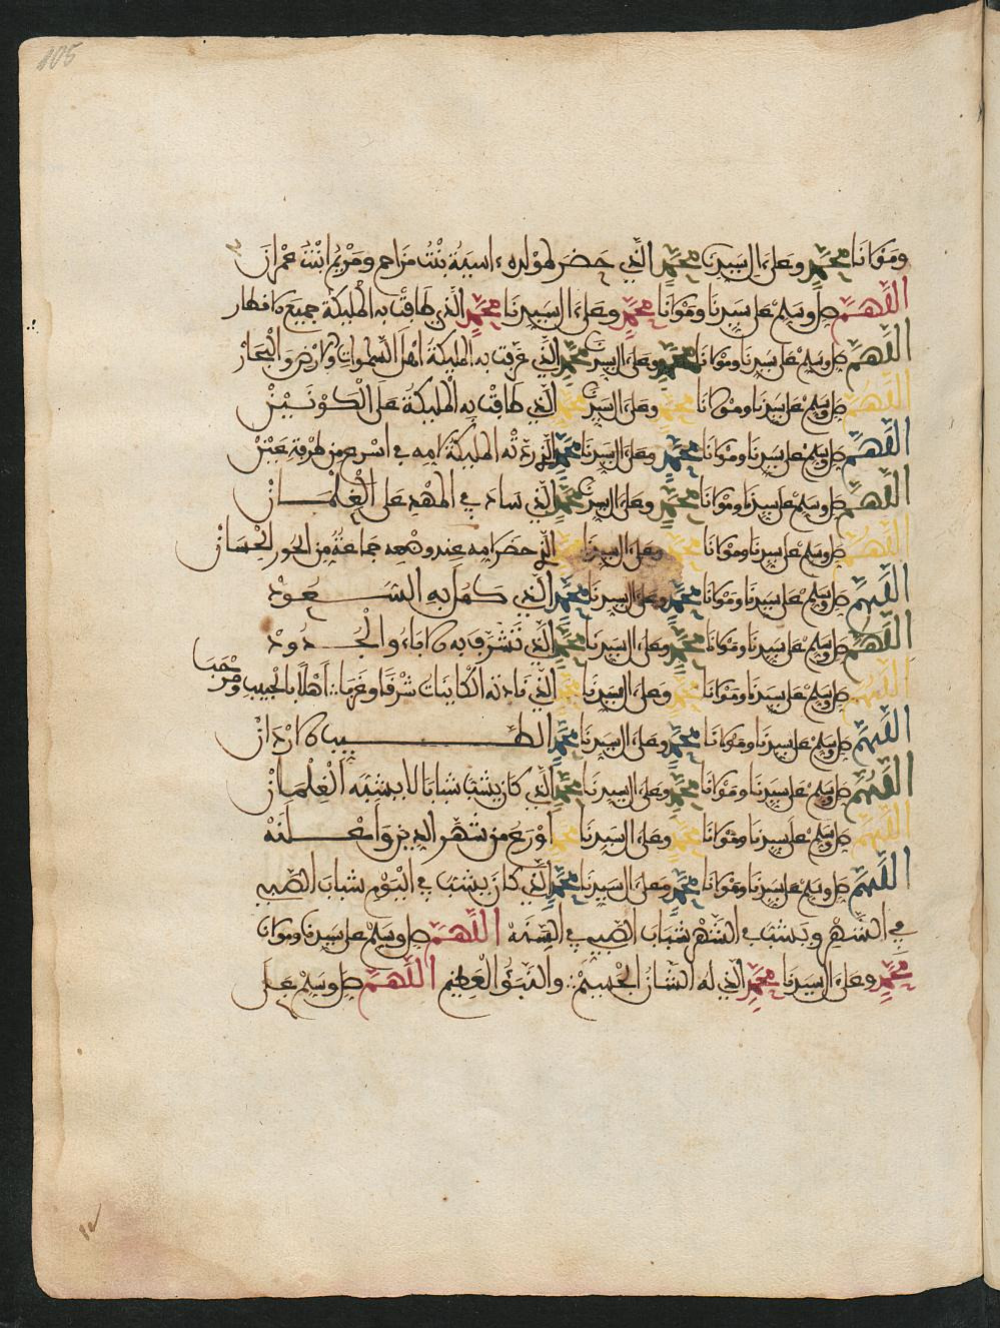 105
ومولانا محمد وعلى ءال سيدنا محمد الذي حضر لمولده ءاسية بنت مزاحم ومريم ابنت عمران
اللهم صل وسلم على سيدنا ومولانا محمد وعلى ءال سيدنا محمد الذي طافت به الملئكة جميع الافطار
اللهم صل وسلم على سيدنا ومولانا محمد وعلى ءال سيدنا محمد الذي عرفت به الملئكة اهل السموات والارض والبحار
اللهم صل وسلم على سيدنا ومولانا محمد وعلى ءال سيدنا محمد الذي طافت به الملئكة على الكونين
اللهم صل وسلم على سيدنا ومولانا محمد وعلى ءال سيدنا محمد الذي ردته الملئكة لامه في اسرع من طرفة عين
اللهم صل وسلم على سيدنا ومولانا محمد وعلى ءال سيدنا محمد الذي ساد في المهد على الغلمان
اللهم صل وسلم على سيدنا ومولانا محمد وعلى ءال سيدنا محمد الذي حضر امه عند وضعه جماعة من الحور الحسان
اللهم صل وسلم على سيدنا ومولانا محمد وعلى ءال سيدنا محمد الذي كمل به السعود
اللهم صل وسلم على سيدنا ومولانا محمد وعلى ءال سيدنا محمد الذي تشرف به الاباء والجدود
اللهم صل وسلم على سيدنا ومولانا محمد وعلى ءال سيدنا محمد الذي نادته الكائنات شرقا وغربا اهلا بالحبيب ومرحبا
اللهم صل وسلم على سيدنا ومولانا محمد وعلى ءال سيدنا محمد الطيب الاردان
اللهم صل وسلم على سيدنا ومولانا محمد وعلى ءال سيدنا محمد الذي كان يشب شبابا لا يشبه الغلمان
اللهم صل وسلم على سيدنا ومولانا محمد وعلى ءال سيدنا محمد اورع من شهر الدين واعلنه
اللهم صل وسلم على سيدنا ومولانا محمد وعلى ءال سيدنا محمد الذي كان يشب في اليوم شباب الصبي
في الشهر ويشب في الشهر شباب الصبي في السنه اللهم صل وسلم على سيدنا ومولانا
محمد وعلى ءال سيدنا محمد الذي له الشان الجسيم والنبؤ العظيم اللهم صل وسلم على